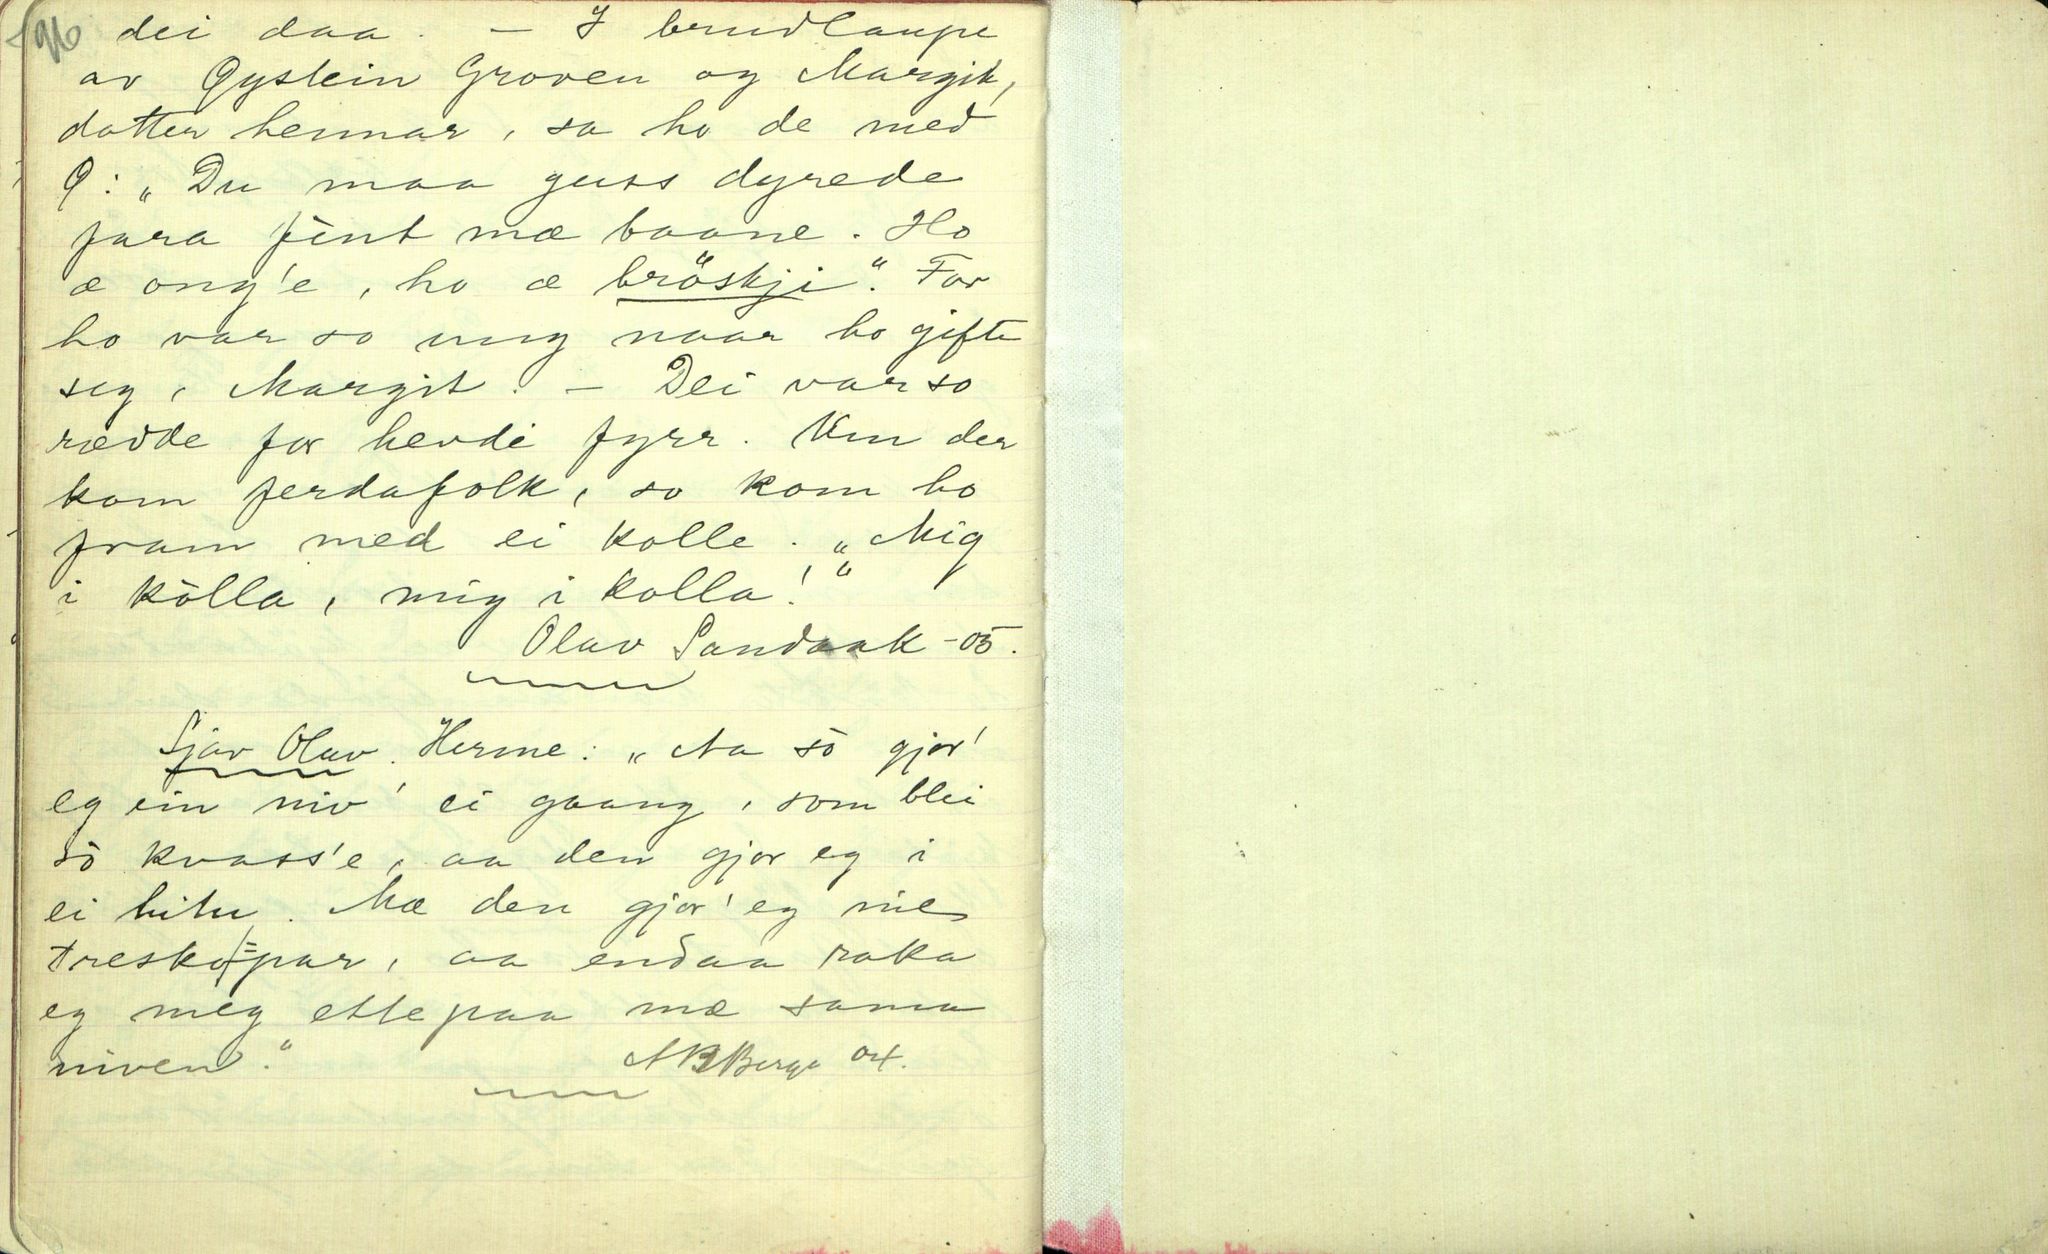 96 dei daa. – I brudlaupe
av Øystein Groven og Margit,
dotter hennar, sa ho de med
Ø: „Du maa guss dyrede
fara fint mæ baane. Ho
æ ong'e, ho æ bröskji“. For
ho var so ung naar ho gifte
seg, Margit. – Dei var so
rædde for hevdi fyrr. Um der
kom ferdafolk, so kom ho
fram med ei kolle. „Mig
i kòlla, mig i kolla!“
Olav Sandaak -05.
Sjav Olav. Herme: „Aa sò gjor'
eg ein niv' ei gaang, som blei
sò kvass'e, aa den gjor eg i
ei hitu. Mæ den gjor' eg nie
tresko=par, aa endaa raka
eg meg ette paa mæ sama
niven.“ ABBerge 04.